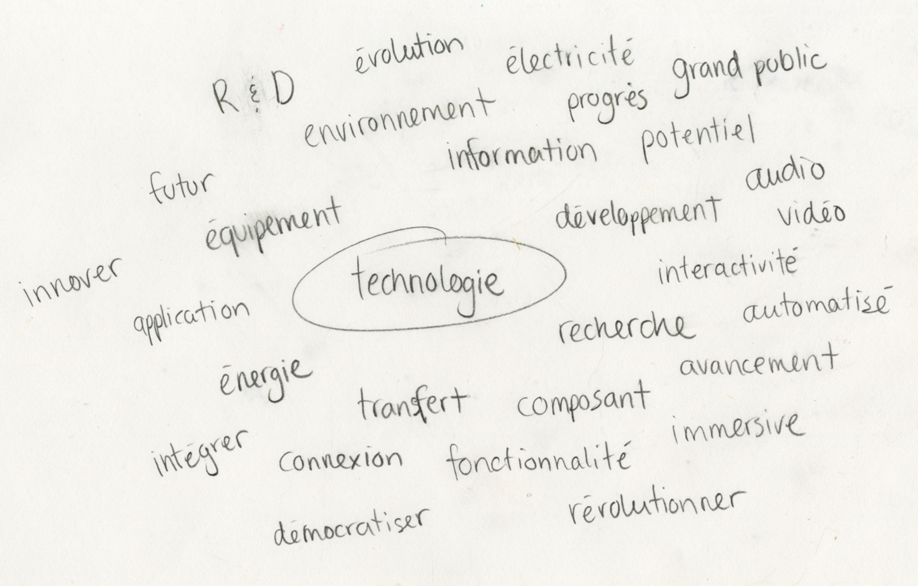 évolution
électricité
grand public
R & D
progrès
environnement
information
potentiel
futur
audio
équipement
développement
vidéo
innover
technologie
interactivité
application
recherche
automatisé
énergie
avancement
transfert
composant
immersive
intégrer
connexion
fonctionnalité
démocratiser
révolutionner